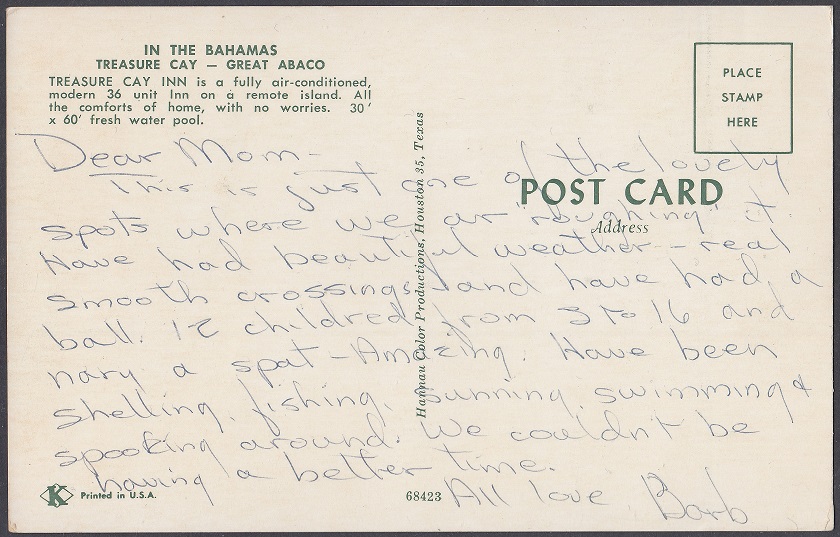 IN THE BAHAMAS
TREASURE CAY — GREAT ABACO
TREASURE CAY INN is a fully air-conditioned,
modern 36 unit Inn on a remote island. All
the comforts of home, with no worries. 30'
x 60' fresh water pool.
PLACE
STAMP
HERE
POST CARD
Address
Hannau Color Productions, Houston 35, Texas
Dear Mom -
This is just one of the lovely
spots where we ar "roughing" it.
Have had beautiful weather -- real
smooth crossings and have had a
ball. 12 children from 3 to 16 and
nary a spat - Amazing. Have been
shelling, fishing, sunning, swimming &
spooking around. We couldn't be
having a better time.
All love Barb
K
Printed in U.S.A.
68423